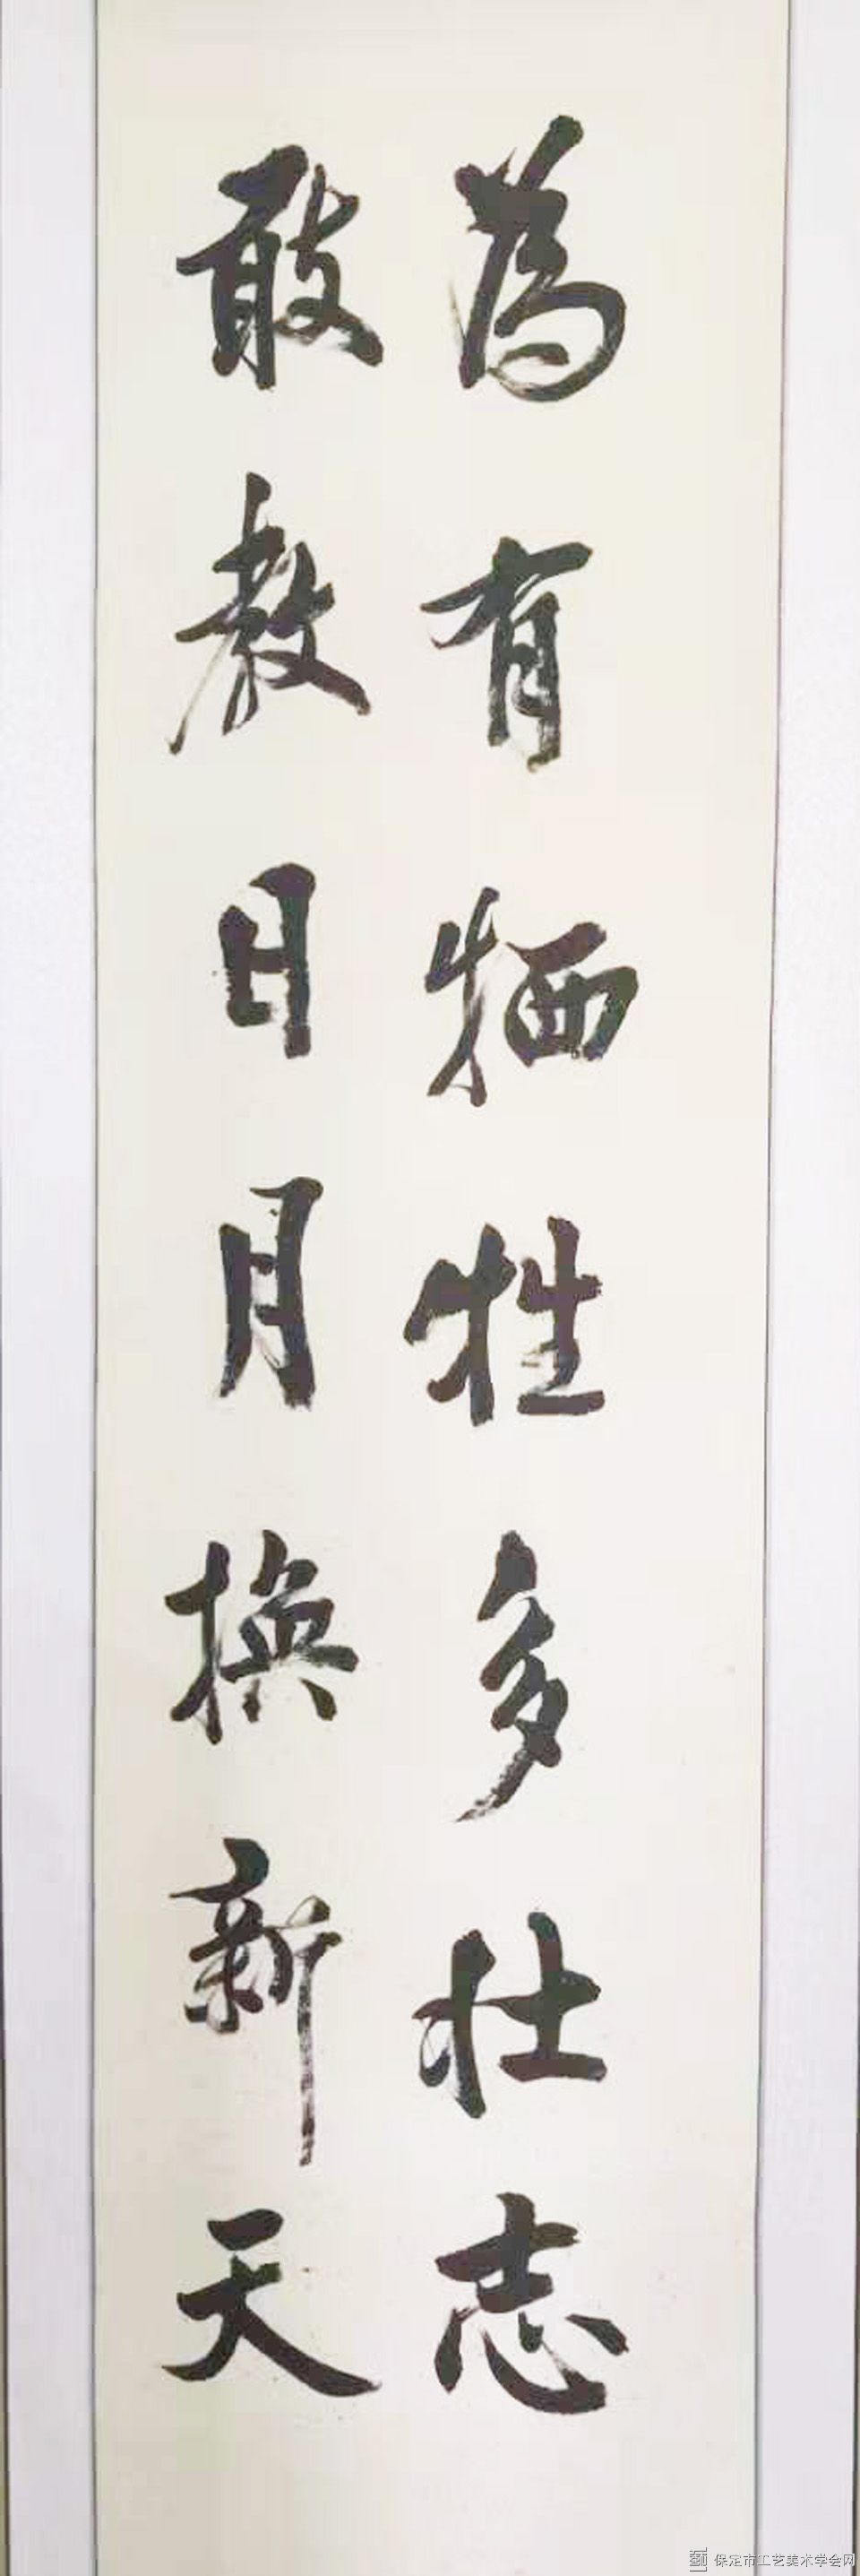 為有牺牲多壮志
敢教日月换新天
保定市工艺美术学会网